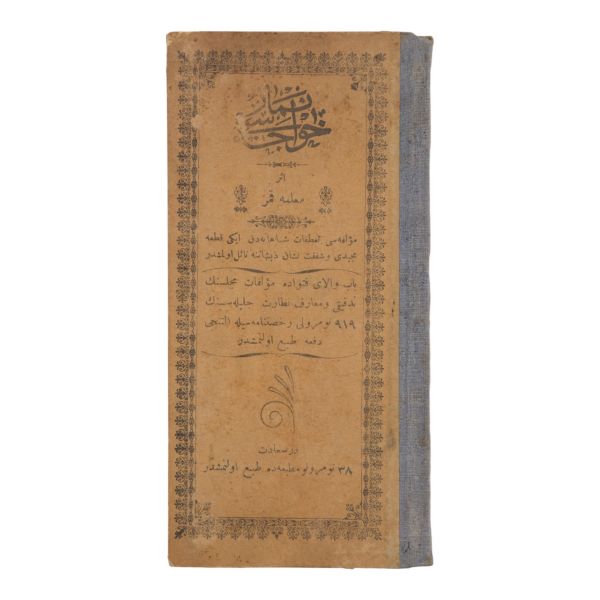 نماز خواجه‌سی
اثر
معلمه قمر
مؤلفه‌سی تلطفات شاهانه‌دن ایکی قطعه
مجیدی و شفقت نشان ذیشاننه نائل اولمشدر
باب والای فتواده مؤلفات مجلسنك
تدقیقی و معارف نظارت جلیله‌سنك
٩١٩ نومرولی رخصتنامه‌سیله التنجی
دفعه طبع اولنمشدر
درسعادت
٣٨ نومرولو مطبعه‌ده طبع اولنمشدر